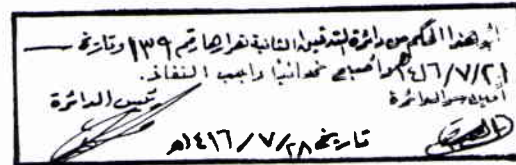 أيد هذا الحكم من دائرة التدقيق الثانية بقرارها رقم ١٣٩ وتاريخ
١٤١٦/٧/٢١هـ وأصبح نهائياً واجب النفاذ.
أمين سر الدائرة رئيس الدائرة
تاريخ ١٤١٦/٧/٢٨هـ